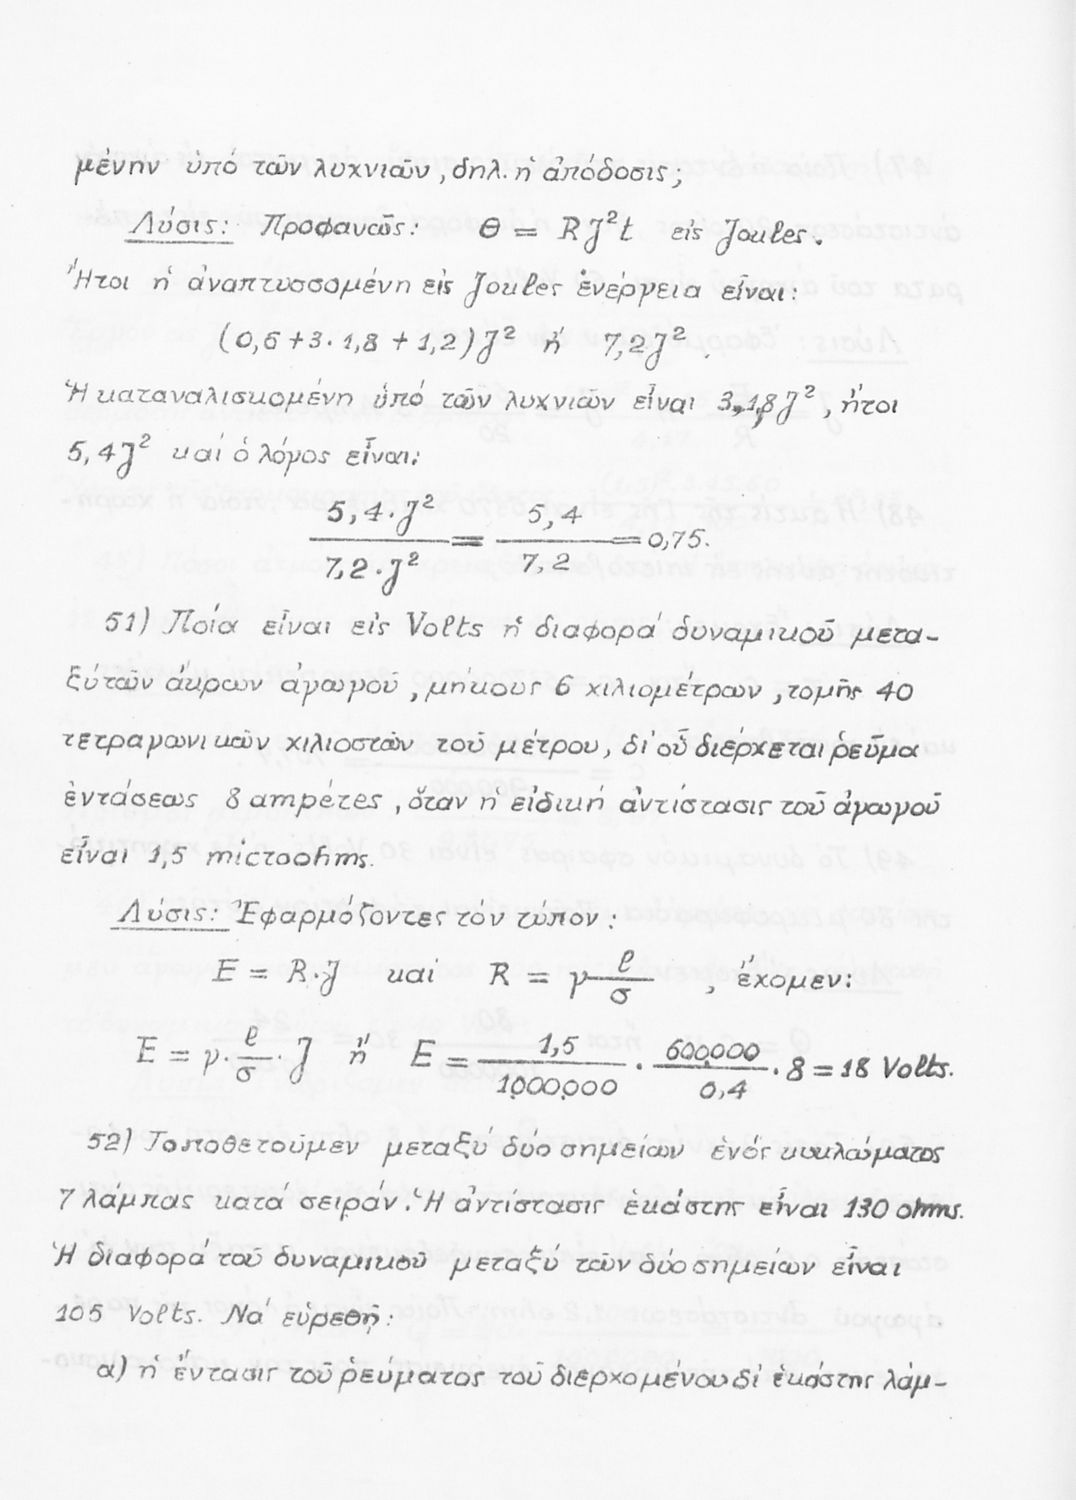 μένην ὑπό τῶν λυχνιῶν, δηλ. ἡ ἀπόδοσις;
Λύσις: Προφανῶς: Θ = RJ²t εἰς Joules.
Ἤτοι ἡ ἀναπτυσσομένη εἰς Joules ἐνέργεια εἶναι:
(0,6 + 3· 1,8 + 1,2) J² ἤ 7,2 J².
Ἡ καταναλισκομένη ὑπό τῶν λυχνιῶν εἶναι 3·1,8 J², ἤτοι
5,4 J² καί ὁ λόγος εἶναι:
5,4 · J² / 7,2 · J² = 5,4 / 7,2 = 0,75.
51) Ποία εἶναι εἰς Volts ἡ διαφορά δυναμικοῦ μετα-
ξύ τῶν ἄκρων ἀγωγοῦ, μήκους 6 χιλιομέτρων, τομῆς 40
τετραγωνικῶν χιλιοστῶν τοῦ μέτρου, δι' οὗ διέρχεται ῥεῦμα
ἐντάσεως 8 ampères, ὅταν ἡ εἰδική ἀντίστασις τοῦ ἀγωγοῦ
εἶναι 1,5 microohms.
Λύσις: Ἐφαρμόζοντες τόν τύπον:
E = R·J καί R = γ ℓ/σ, ἔχομεν:
E = γ· ℓ/σ · J ἤ E = 1,5 / 1.000.000 · 600.000 / 0,4 · 8 = 18 Volts.
52) Τοποθετοῦμεν μεταξύ δύο σημείων ἑνός κυκλώματος
7 λάμπας κατά σειράν. Ἡ ἀντίστασις ἑκάστης εἶναι 130 ohms.
Ἡ διαφορά τοῦ δυναμικοῦ μεταξύ τῶν δύο σημείων εἶναι
105 Volts. Νά εὑρεθῇ:
α) ἡ ἔντασις τοῦ ῥεύματος τοῦ διερχομένου δι' ἑκάστης λάμ-